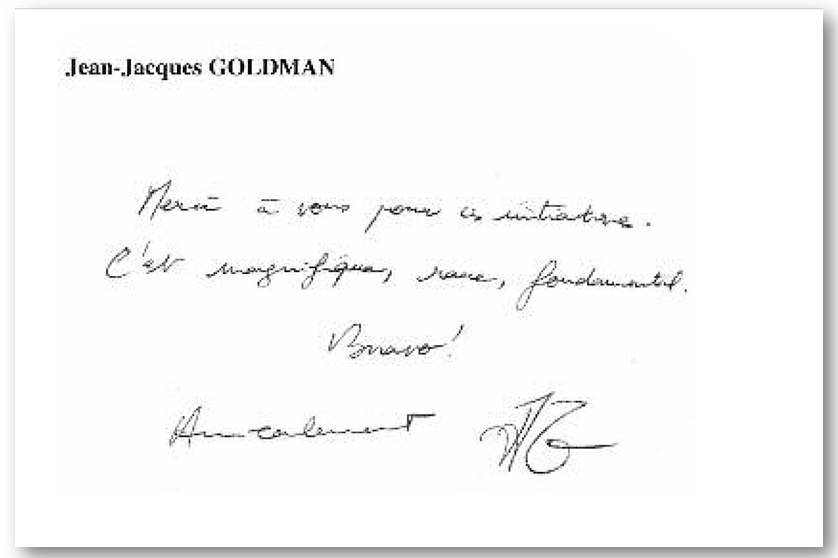 Jean-Jacques GOLDMAN
Merci à vous pour ces initiatives.
C'est magnifique, rare, fondamental.
Bravo!
Amicalement JJG